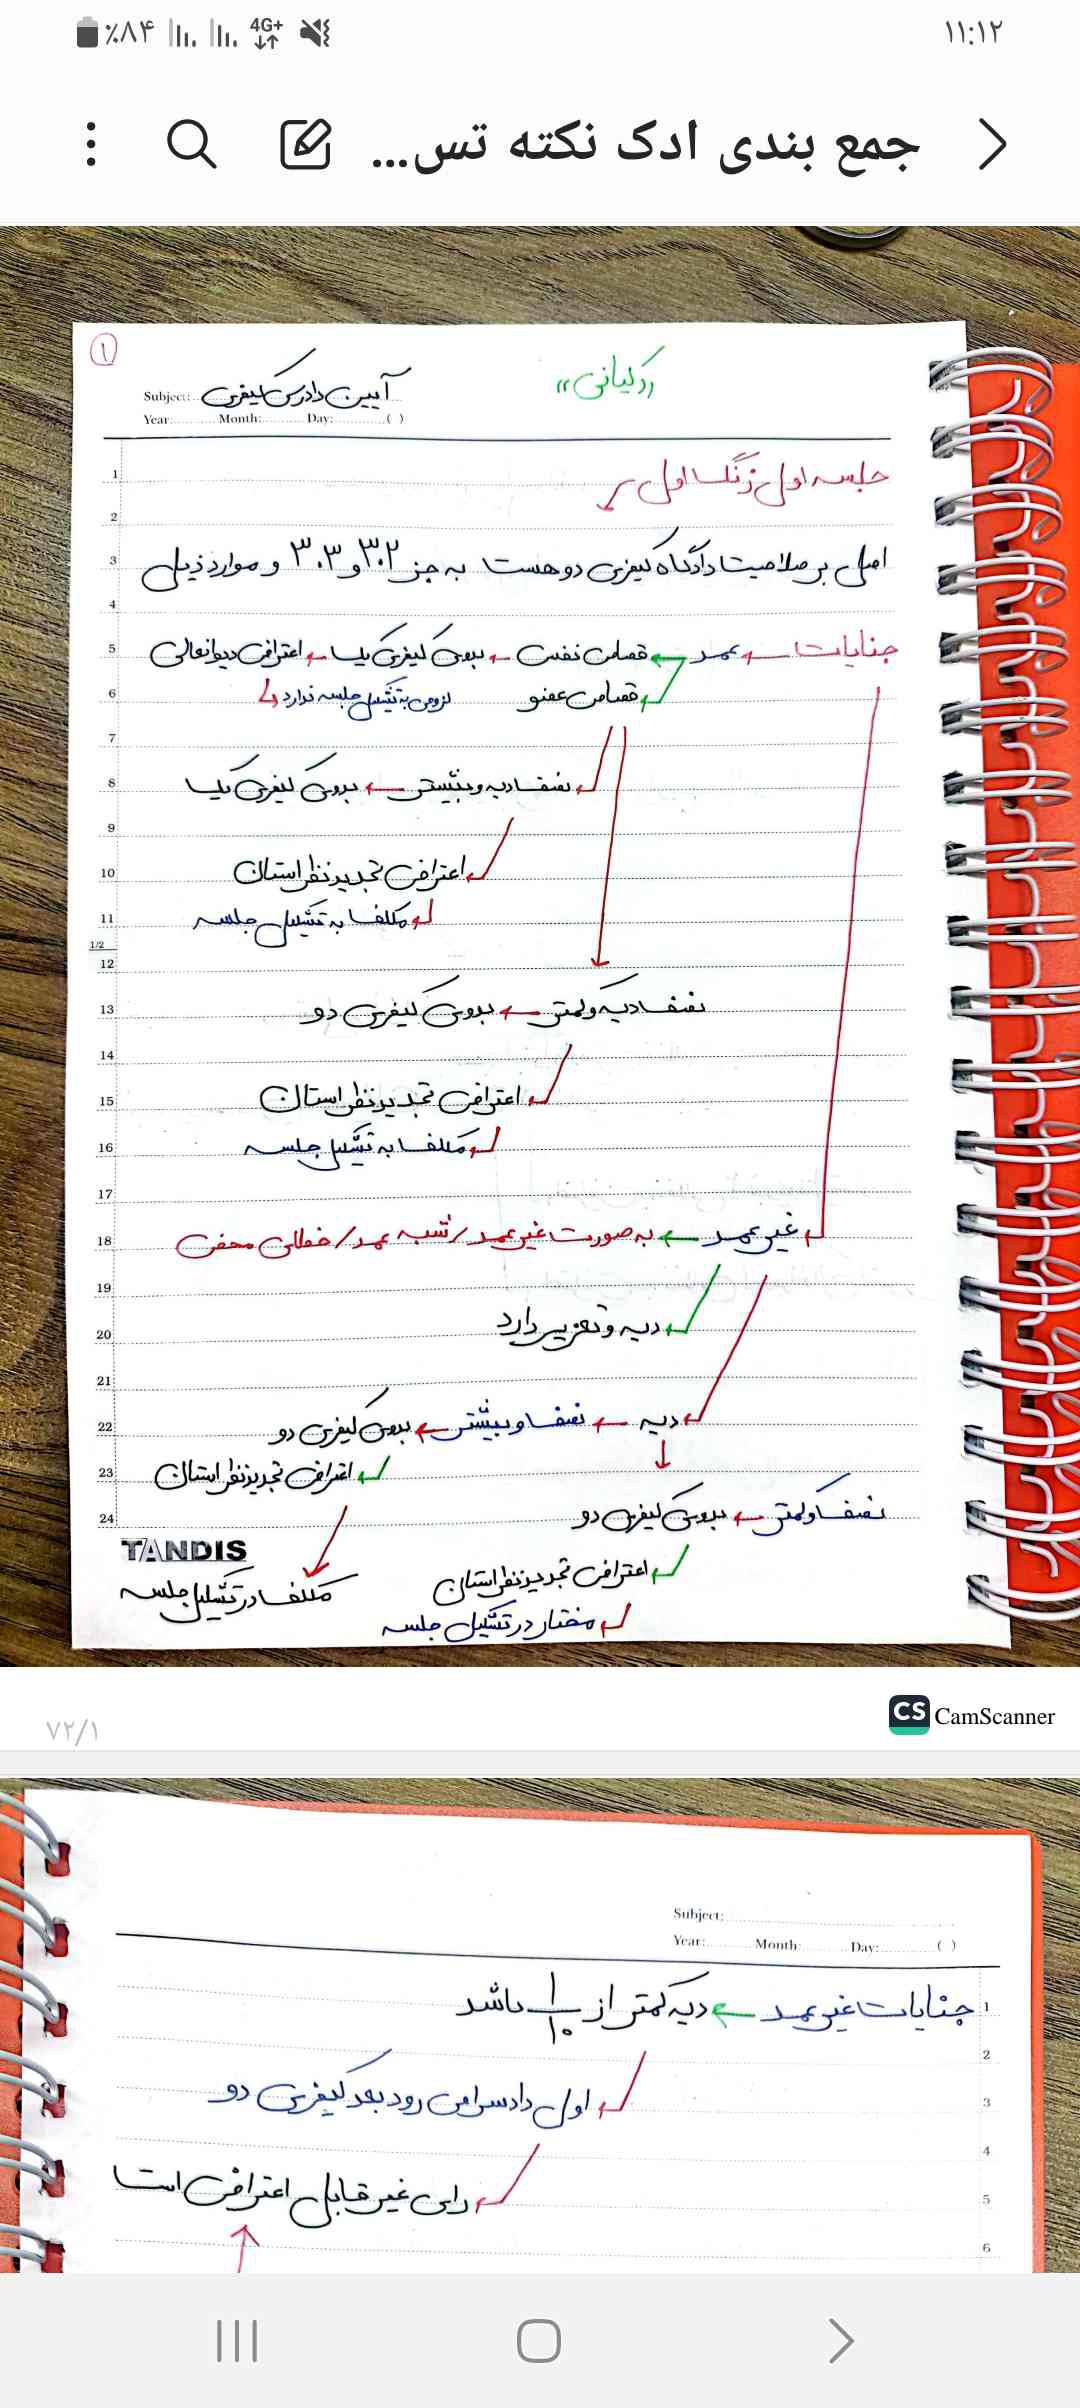 ٪۸۴ 4G+ ۱۱:۱۲
جمع بندی ادک نکته تس...
۱
((کیانی))
Subject: آیین دادرسی کیفری
Year: Month: Day: ( )
جلسه اول زنگ اول
اصل بر صلاحیت دادگاه کیفری دو هست به جز ۳۰۲ و ۳۰۳ و موارد ذیل
جنایات ← عمد ← قصاص نفس ← بدوی کیفری یک ← اعتراض دیوانعالی
قصاص عضو لزومی به تشکیل جلسه ندارد
نصف دیه و بیشتر ← بدوی کیفری یک
اعتراض تجدیدنظر استان
مکلف به تشکیل جلسه
نصف دیه و کمتر ← بدوی کیفری دو
اعتراض تجدیدنظر استان
مکلف به تشکیل جلسه
غیر عمد ← به صورت غیر عمد / شبه عمد / خطای محض
دیه و تعزیر دارد
دیه ← نصف و بیشتر ← بدوی کیفری دو
اعتراض تجدیدنظر استان
نصف و کمتر ← بدوی کیفری دو
اعتراض تجدیدنظر استان
مختار در تشکیل جلسه
مکلف در تشکیل جلسه
1
2
3
4
5
6
7
8
9
10
11
1/2
12
13
14
15
16
17
18
19
20
21
22
23
24
TANDIS
CS CamScanner
۷۲/۱
Subject:
Year: Month: Day: ( )
جنایات غیر عمد ← دیه کمتر از ۱/۱۰ باشد
اول دادسرا می رود بعد کیفری دو
رای غیر قابل اعتراض است
1
2
3
4
5
6